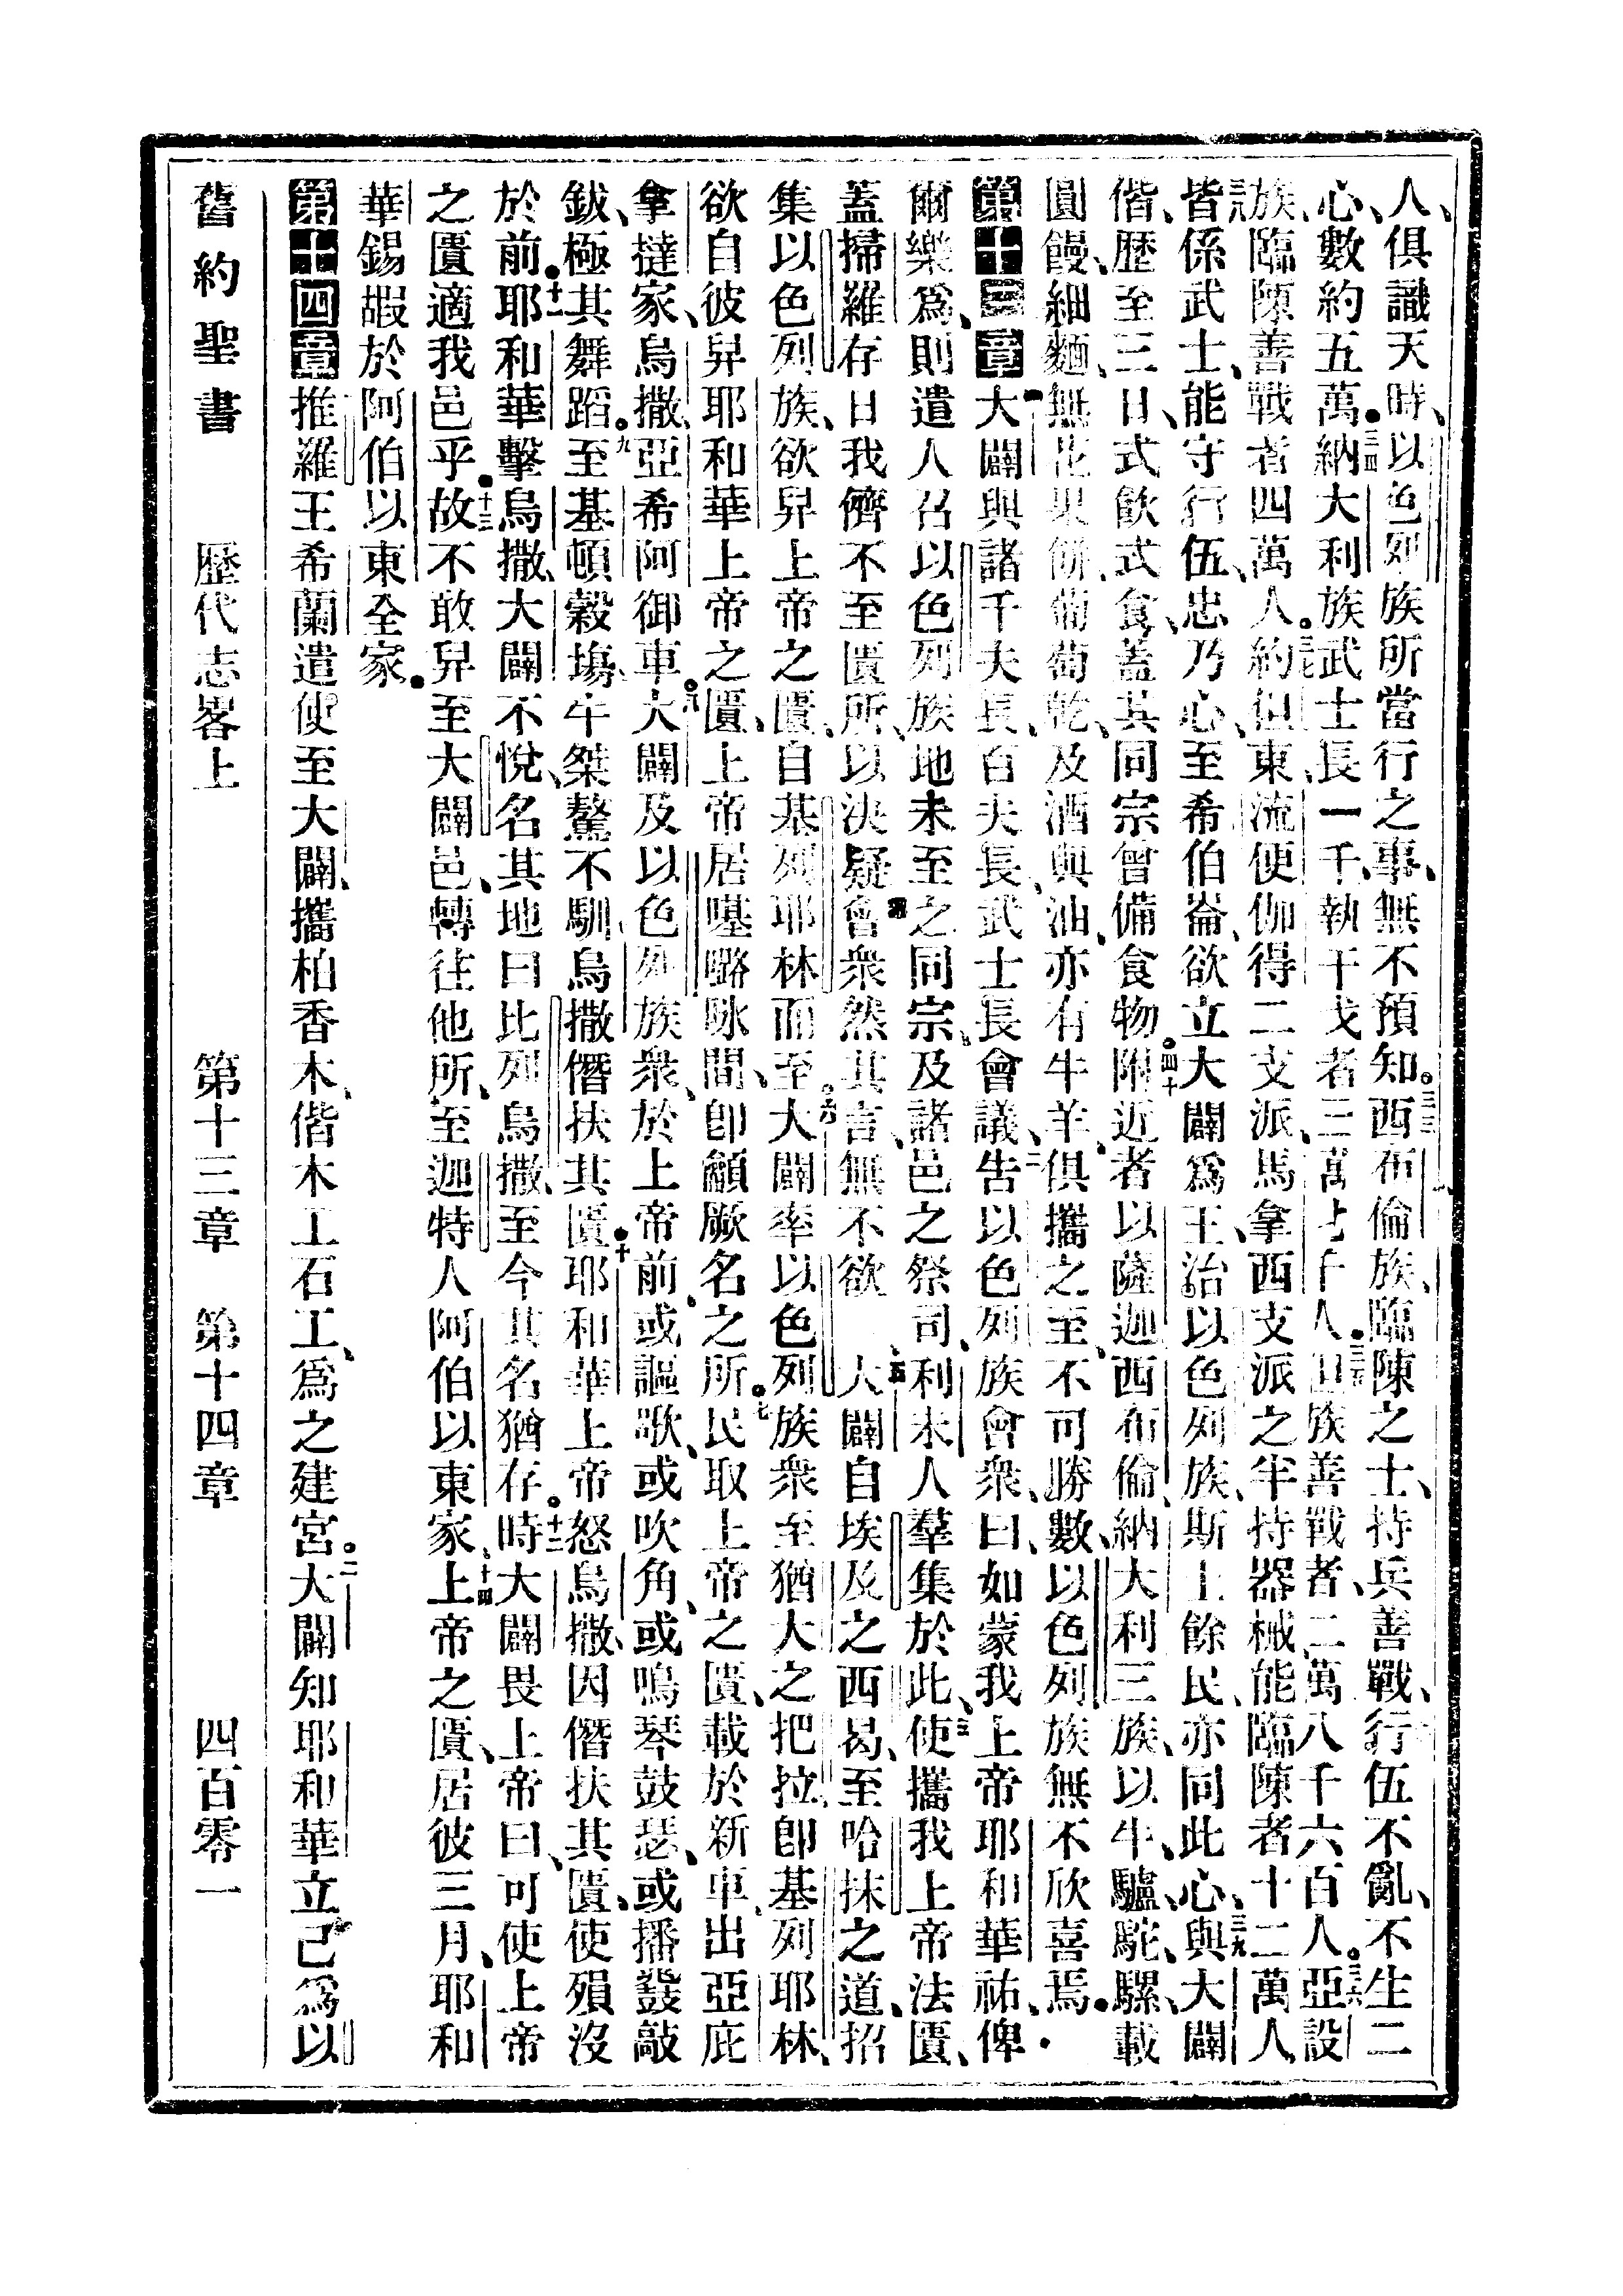 人、俱識天時、以色列族所當行之事、無不預知。三三西布倫族、臨陳之士、持兵善戰、行伍不亂、不生二
心、數約五萬。三四納大利族武士長一千、執干戈者三萬七千人。三五但族善戰者、二萬八千六百人。三六亞設
族、臨陳善戰者四萬人。三七約但東、流便伽得二支派、馬拿西支派之半、持器械、能臨陳者十二萬人、
三八皆係武士、能守行伍、忠乃心、至希伯崙、欲立大闢爲王、治以色列族、斯土餘民、亦同此心、三九與大闢
偕、歷至三日、式飲式食、蓋其同宗曾備食物。四十附近者以薩迦西布倫、納大利三族、以牛、驢、駝、騾、載
圓饅、細麵、無花果餅、葡萄乾、及酒與油、亦有牛羊、俱攜之至、不可勝數、以色列族無不欣喜焉。
第十三章大闢與諸千夫長、百夫長、武士長會議、二告以色列族會衆、曰、如蒙我上帝耶和華祐、俾
爾樂爲、則遣人召以色列族地未至之同宗、及諸邑之祭司、利未人羣集於此、三使攜我上帝法匱、
蓋掃羅存日我儕不至匱所、以決疑、四會衆然其言、無不欲、五大闢自埃及之西曷、至哈抹之道、招
集以色列族、欲舁上帝之匱、自基列耶林而至。六大闢率以色列族衆至猶大之把拉、卽基列耶林、
欲自彼舁耶和華上帝之匱、上帝居𠼻㗉㕽間、卽籲厥名之所。七民取上帝之匱、載於新車、出亞庇
拿撻家、烏撒、亞希阿御車。八大闢及以色列族衆、於上帝前、或謳歌、或吹角、或鳴琴鼓瑟、或播鼗敲
鈸、極其舞蹈。九至基頓穀塲、牛桀驁不馴、烏撒僭扶其匱。十耶和華上帝怒烏撒、因僭扶其匱、使殞沒
於前。十一耶和華擊烏撒、大闢不悅、名其地曰比列烏撒、至今其名猶存。十二時大闢畏上帝曰、可使上帝
之匱適我邑乎。十三故不敢舁至大闢邑、轉往他所、至迦特人阿伯以東家、十四上帝之匱、居彼三月、耶和
華錫嘏於阿伯以東全家。
第十四章推羅王希蘭遣使至大闢、攜柏香木、偕木工石工、爲之建宮。二大闢知耶和華立己爲以
舊約聖書　歷代志畧上　第十三章　第十四章　四百零一